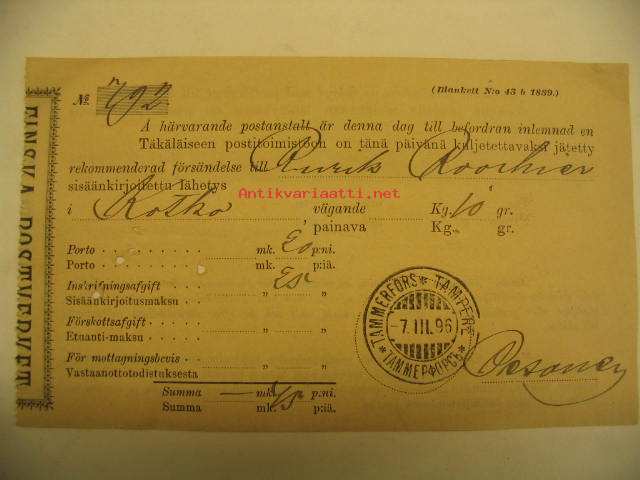 FINSKA POSTVERKET
№ 792
(Blankett N:o 43 b 1889.)
Å härvarande postanstalt är denna dag till befordran inlemnad en
Täkäläiseen postitoimistoon on tänä päivänä kuljetettavaksi jätetty
rekommenderad försändelse till Rurik
sisäänkirjoitettu lähetys
Antikvariaatti.net
i Kotka vägande Kg. 10 gr.
painava Kg. gr.
Porto mk. 20 p:ni.
Porto mk. p:iä.
Inskrifningsafgift „ 25 „
Sisäänkirjoitusmaksu „ „
Förskottsafgift „ „
Etuanti-maksu „ „
För mottagningsbevis „ „
Vastaanottotodistuksesta „ „
Summa — mk. 45 p:ni.
Summa mk. p:iä.
TAMMERFORS * TAMPERE
-7. III. 96
* ТАММЕРФОРСЪ *